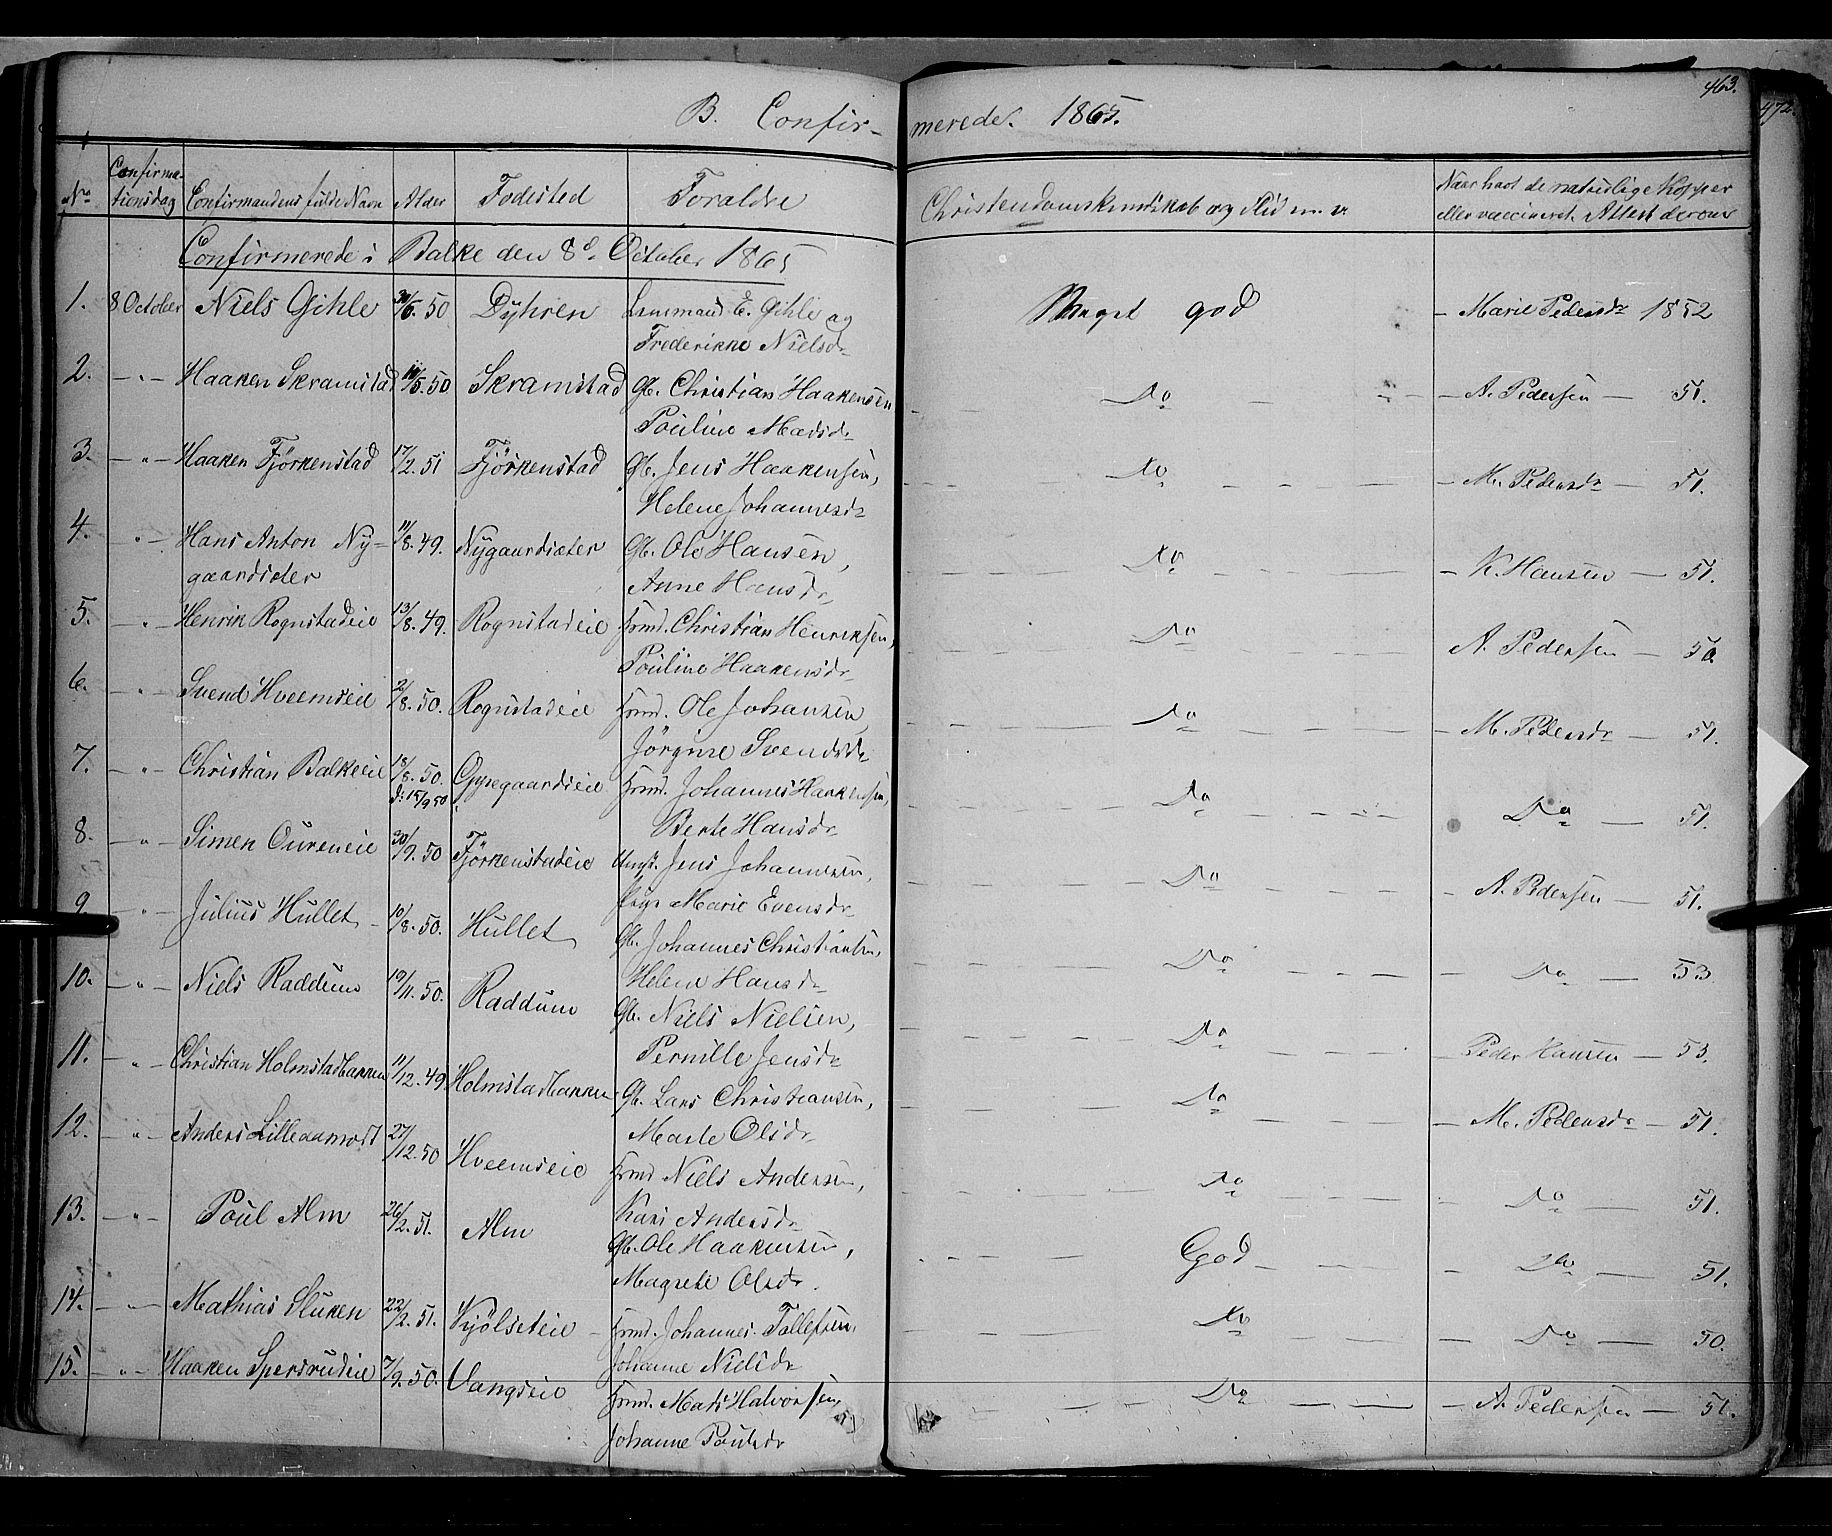 463.
472.
B. Confir- merede. 1865.
No
Confirma-
tionsdag
Confirmandens fulde Navn
Alder
Fodested
Forældre
Christendomskundskab og Flid m. v.
Naar havt de naturlige Kopper
eller vaccineret. Attest derom
Confirmerede i Balke den 8de October 1865
1. 8 October Niels Gihle 30/6. 50 Dyhren Lensmand E. Gihle og Meget god - Marie Pedersdr 1852
Frederikke Nielsdr
2. - " - Haaken Skramstad 11/5. 50 Skramstad Gb. Christian Haakensen Do - A. Pedersen - 51.
Pouline Madsdr
3. - " - Haaken Fjörkenstad 17/2. 51 Fjörkenstad Gb. Jens Haakensen, Do - M. Pedersdr - 51.
Helene Johannesdr
4. " - Hans Anton Ny- 11/8. 49. Nygaardsæter Gb. Ole Hansen, Do - K. Hansen - 51.
gaardsæter Anne Hansdr
5. - " - Henrik Rognstadeie 13/8. 49. Rognstadeie Hmd. Christian Henriksen, Do A. Pedersen - 50
Pouline Haakensdr
6. - " - Svend Hveemseie 2/8. 50. Rognstadeie Hmd. Ole Johansen, Do - M. Pedersdr - 51.
Jörgine Svendsdr
7. - " - Christian Balkeeie 18/8. 50. Oppegaardseie Hmd. Johannes Haakensen, Do Do - 51.
d: 15/9 50 Berte Hansdr
8. - " - Simen Oureneie 30/9. 50 Fjörkenstadeie Ungk. Jens Johannesen, Do - A. Pedersen - 51.
Pige Marie Evensdr
9. " - Julius Hullet - 10/8. 50. Hullet Gb. Johannes Christiansen, Do - Do - 53
Helene Hansdr
10. - " - Niels Raddum 19/11. 50. Raddum Gb. Niels Nielsen, Do - Peder Hansen - 53.
Pernille Jensdr
11. - " Christian Holmstadbakken 11/12. 49 Holmstadbakken Gb. Lars Christiansen, Do - M. Pedersdr - 51.
Marte Olsdr
12. - " - Anders Lilleaamodt 27/12. 50 Hveemseie Hmd Niels Andersen, Do - Do - 51.
Kari Andersdr
13. - " - Poul Alm 26/2. 51. Alm Gb. Ole Haakensen, God - Do - 51.
Magrete Olsdr.
14. - " - Mathias Sluken 22/2. 51. Kjölseteie - Hmd. Johannes Tollefsen, Do - Do - 50.
Johanne Nielsdr
15. - " - Haaken Spersrudeie 7/9. 50. Vangseie Hmd. Mats Halvorsen, Do - A. Pedersen - 51.
Johanne Poulsdr